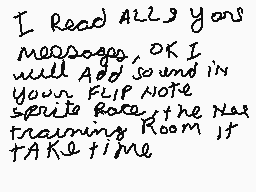 I Read ALL y yors
messages, OK I
will Add sound in
your FLIP Note
sprite Race, the Nes
training Room it
tAKe time